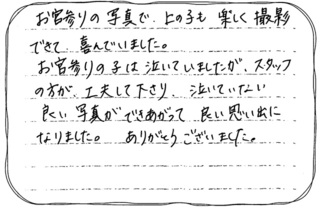 お宮参りの写真で、上の子も楽しく撮影
できて、喜んでいました。
お宮参りの子は泣いていましたが、スタッフ
の方が、工夫して下さり、泣いていない
良い写真ができあがって良い思い出に
なりました。ありがとうございました。